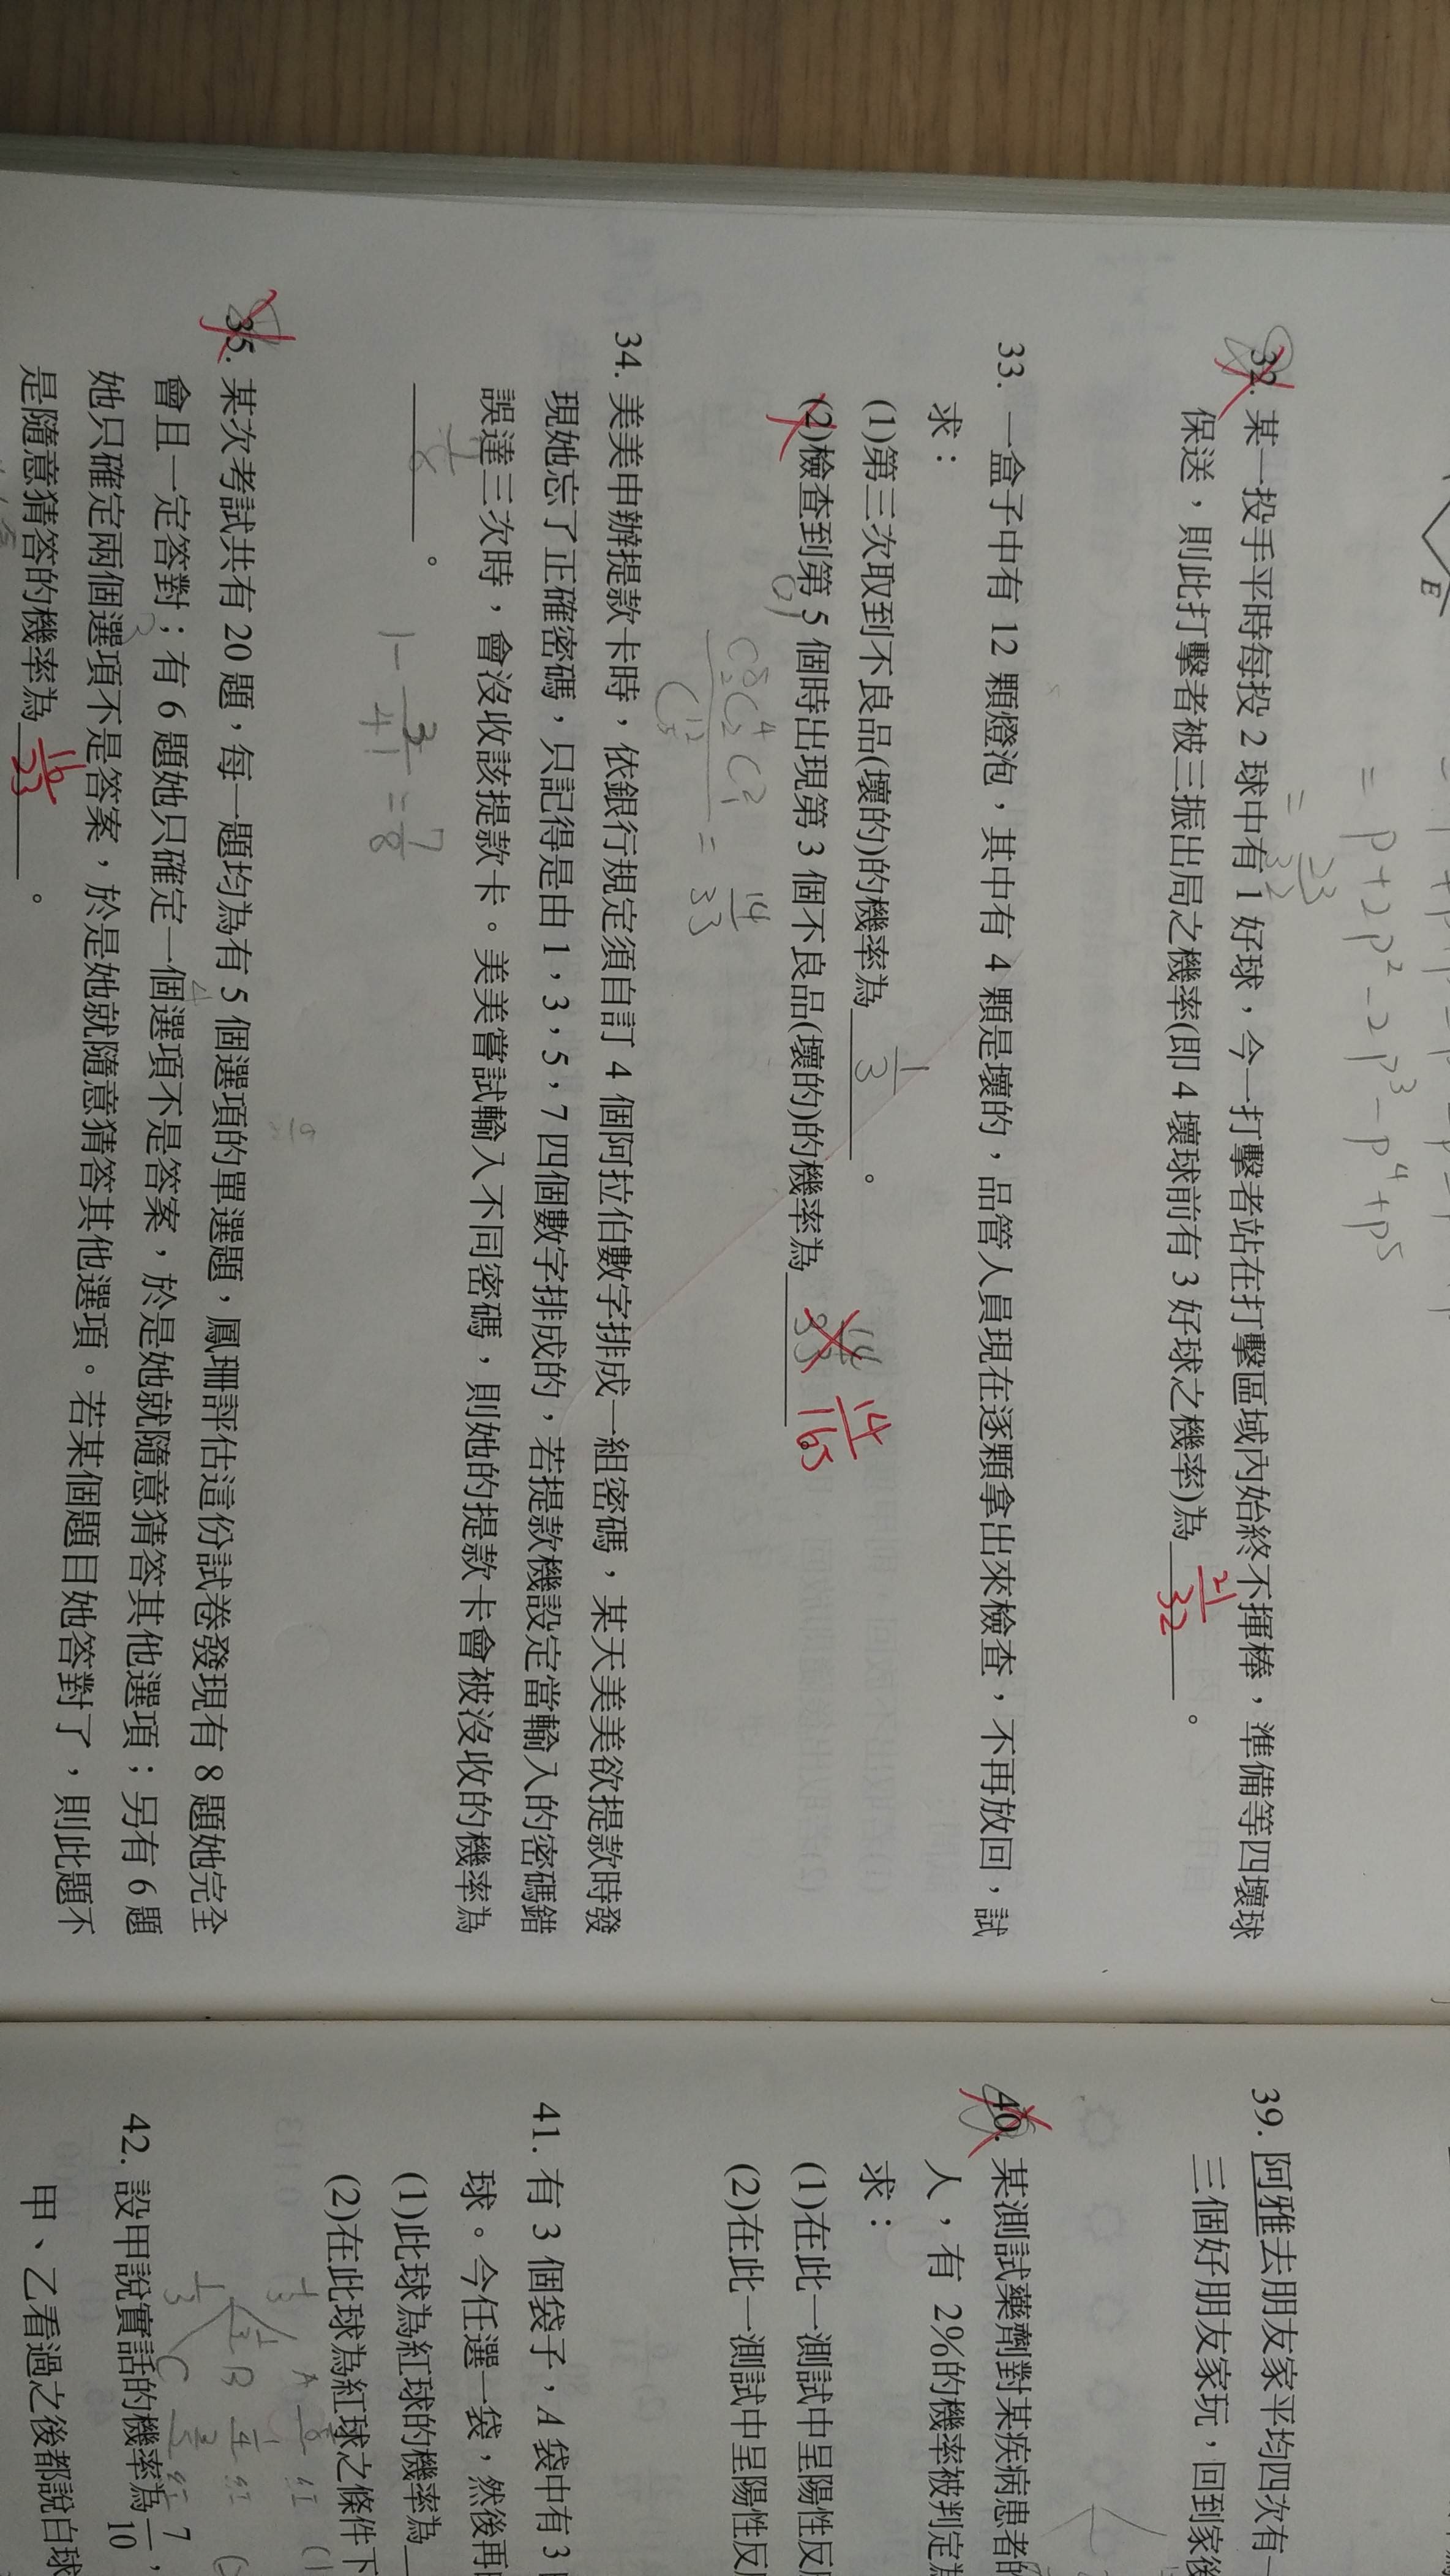 = p+2p²-2p³-p⁴+p⁵
= 23/32
32. 某一投手平時每投 2 球中有 1 好球，今一打擊者站在打擊區域內始終不揮棒，準備等四壞球
保送，則此打擊者被三振出局之機率(即 4 壞球前有 3 好球之機率)為 21/32 。
33. 一盒子中有 12 顆燈泡，其中有 4 顆是壞的，品管人員現在逐顆拿出來檢查，不再放回，試
求：
(1)第三次取到不良品(壞的)的機率為 1/3 。
(2)檢查到第 5 個時出現第 3 個不良品(壞的)的機率為 14/33 14/165
= 14/33
34. 美美申辦提款卡時，依銀行規定須自訂 4 個阿拉伯數字排成一組密碼，某天美美欲提款時發
現她忘了正確密碼，只記得是由 1，3，5，7 四個數字排成的，若提款機設定當輸入的密碼錯
誤達三次時，會沒收該提款卡。美美嘗試輸入不同密碼，則她的提款卡會被沒收的機率為
7/8 。
1 - 3/4! = 7/8
35. 某次考試共有 20 題，每一題均為有 5 個選項的單選題，鳳珊評估這份試卷發現有 8 題她完全
會且一定答對；有 6 題她只確定一個選項不是答案，於是她就隨意猜答其他選項；另有 6 題
她只確定兩個選項不是答案，於是她就隨意猜答其他選項。若某個題目她答對了，則此題不
是隨意猜答的機率為 16/23 。
39. 阿雅去朋友家平均四次有一
三個好朋友家玩，回到家後
40. 某測試藥劑對某疾病患者的
人，有 2%的機率被判定
求：
(1)在此一測試中呈陽性反
(2)在此一測試中呈陽性反
41. 有 3 個袋子，A 袋中有 3
球。今任選一袋，然後再
(1)此球為紅球的機率為
(2)在此球為紅球之條件下
1/3 A 紅
1/3 B 1/4 紅
1/3 C 紅
42. 設甲說實話的機率為 7/10，
甲、乙看過之後都說白球